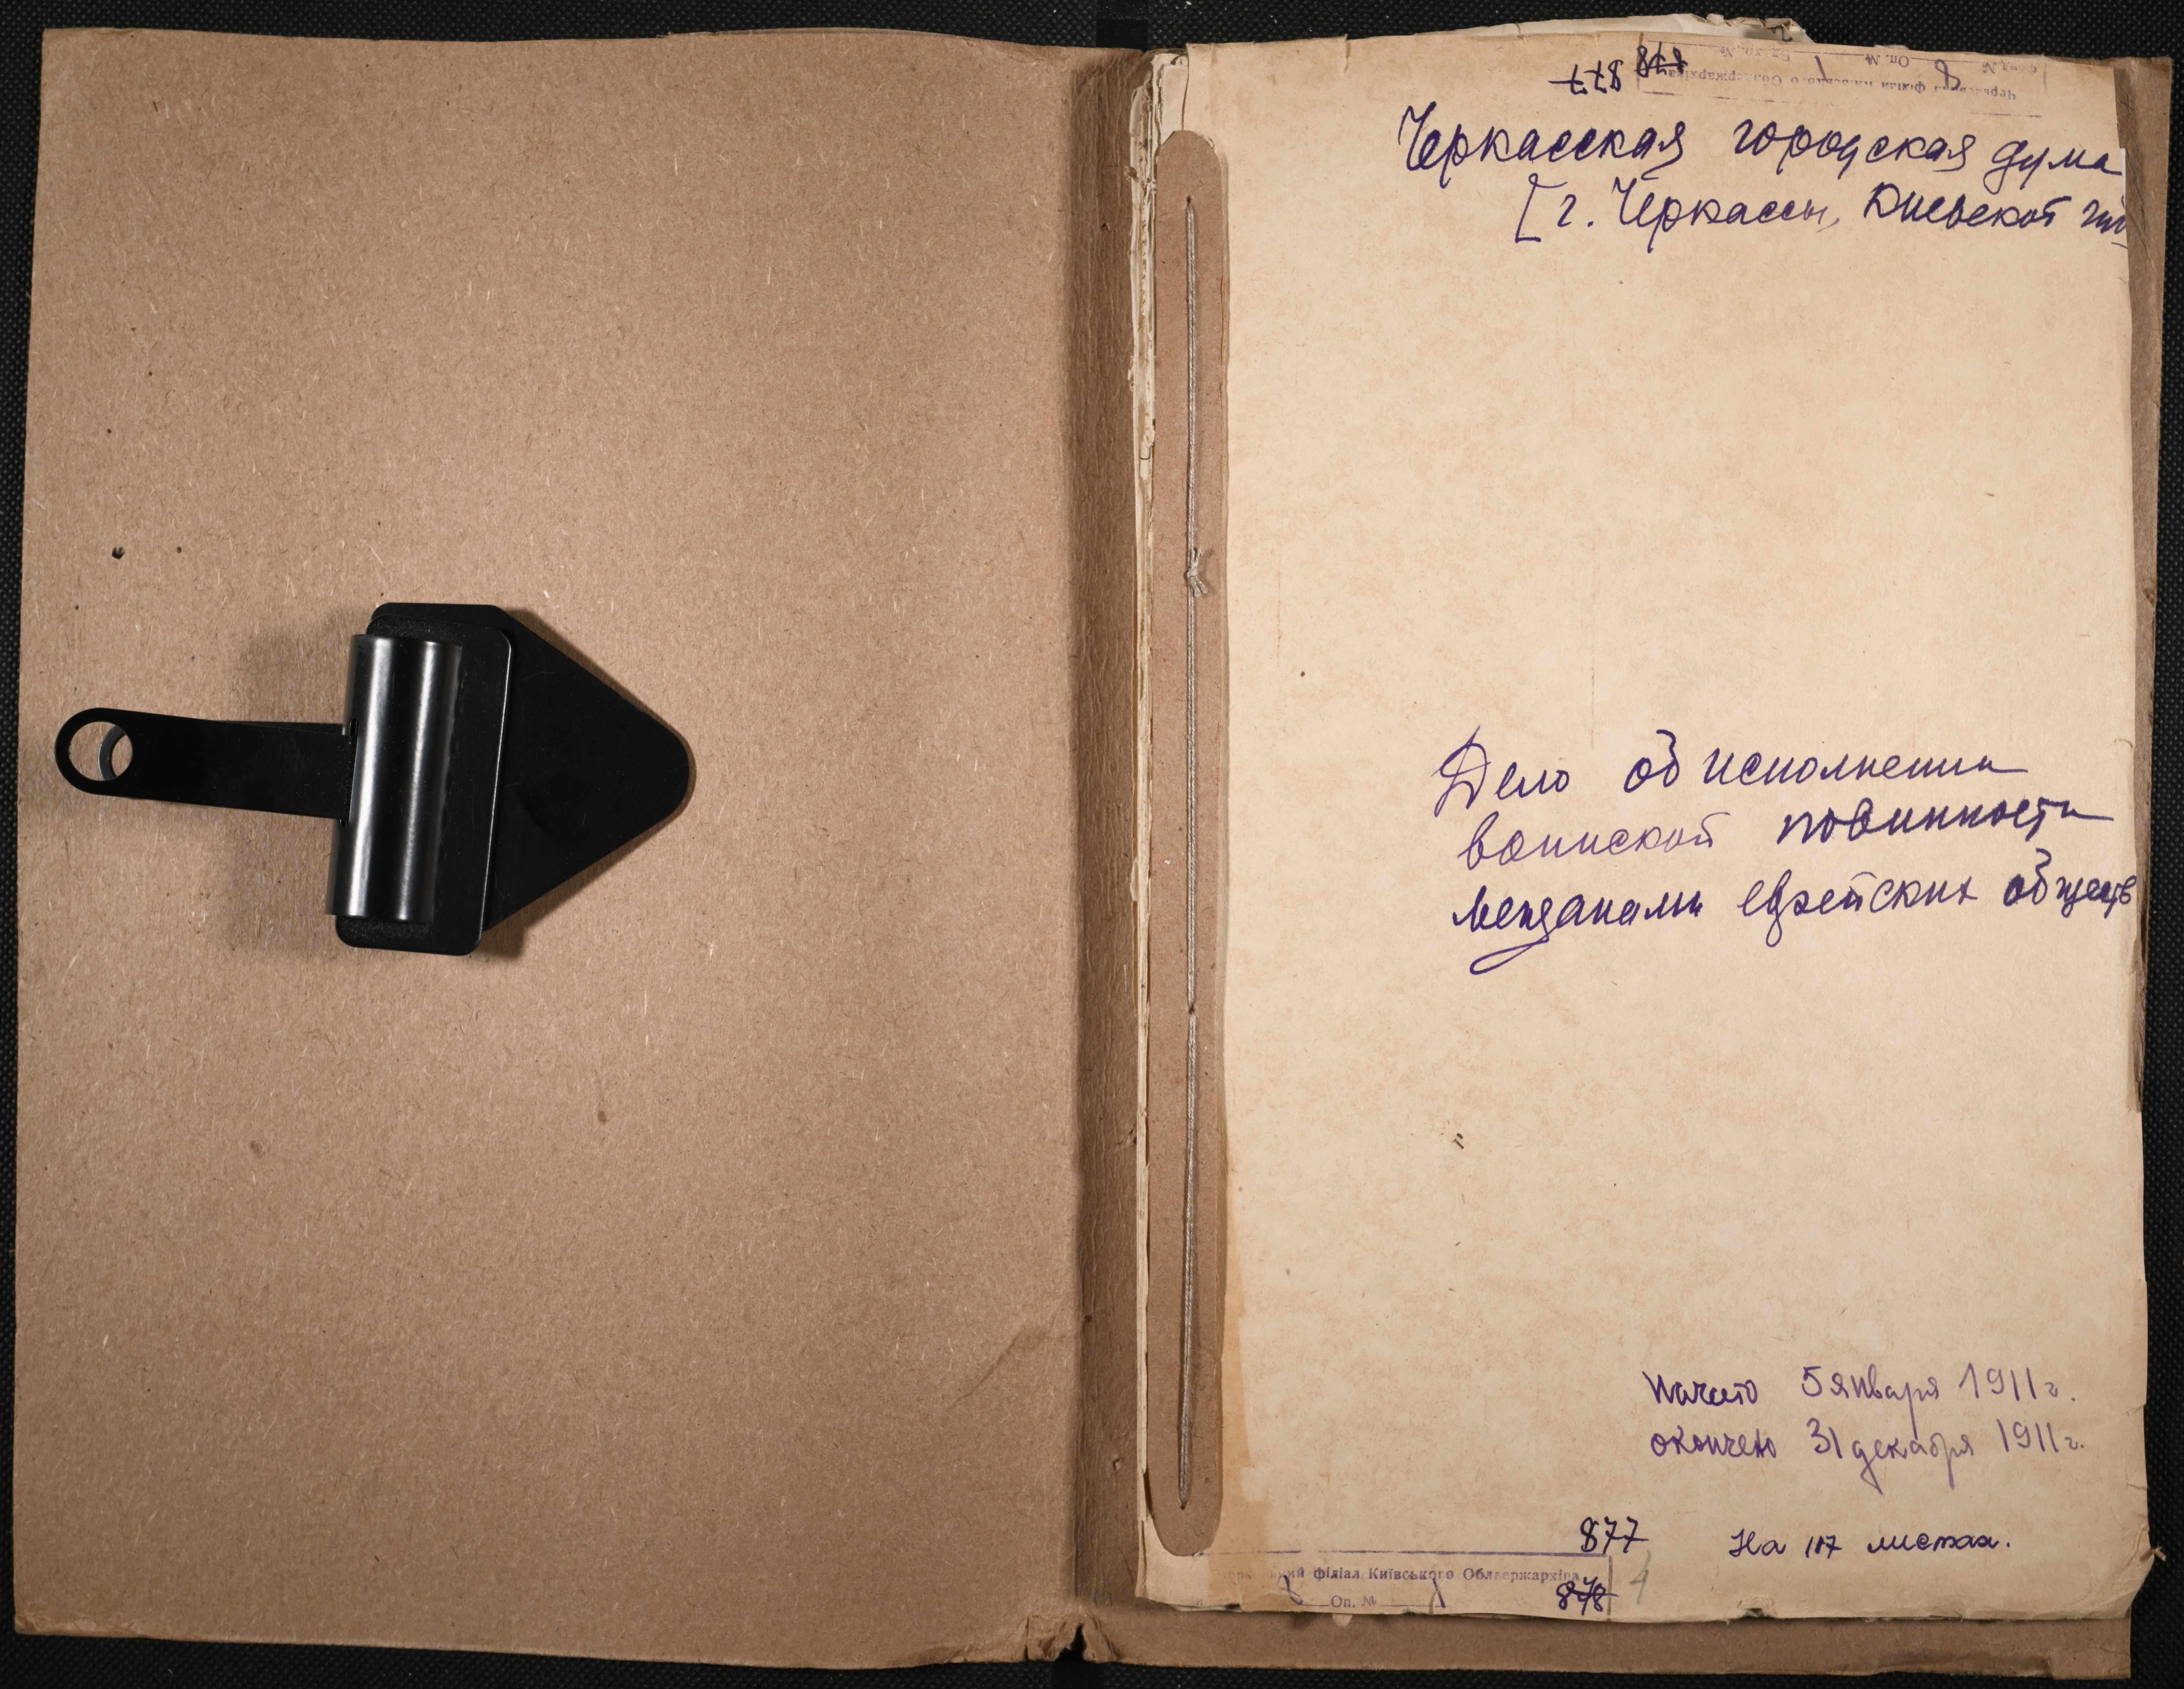 877 878
Черкасский філіал Київського Облдержархіва
Фонд № 8 Оп. № 1 Од. зб. №
Черкасская городская дума
[г. Черкассы, Киевской губ
Дело об исполнении
воинской повинности
мещанами еврейских обществ
Начато 5 января 1911 г.
окончено 31 декабря 1911 г.
877 На 117 листах.
філіал Київського Облдержархіва 4
8 Оп. № 1 878